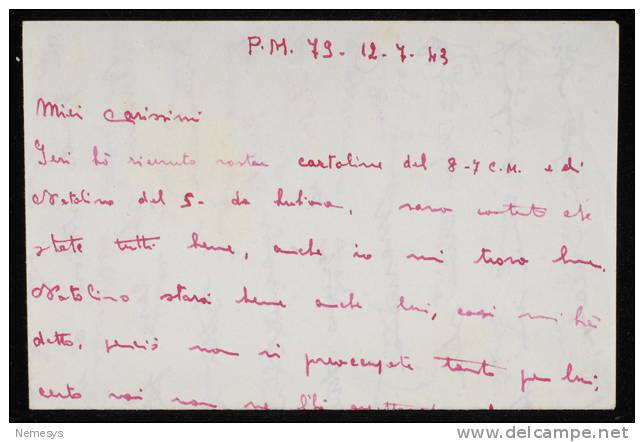 P.M. 79 - 12-7-43
Miei carissimi
Ieri hò ricevuto vostra cartolina del 8-7 C.M. e di
Natalino del 5- da Lubiana, sono contento che
state tutti bene, anche io mi trovo bene.
Natalino starà bene anche lui, così mi hà
detto, perciò non vi preoccupate tanto per lui;
certo voi non ve
Nemesys
delcampe.net